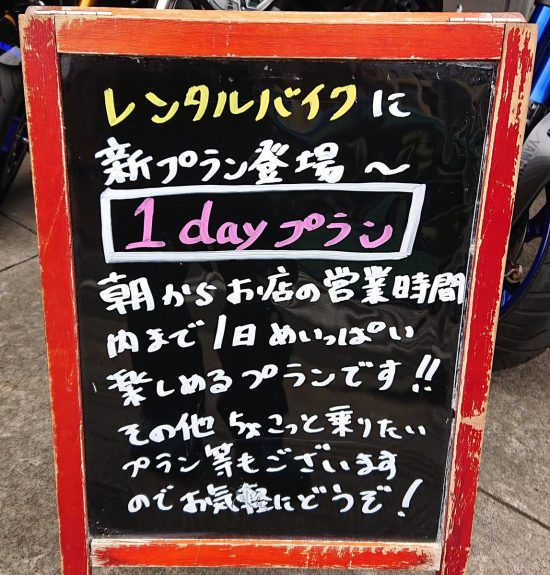 レンタルバイクに
新プラン登場〜
1dayプラン
朝からお店の営業時間
内まで1日めいっぱい
楽しめるプランです!!
その他ちょこっと乗りたい
プラン等もございます
のでお気軽にどうぞ!